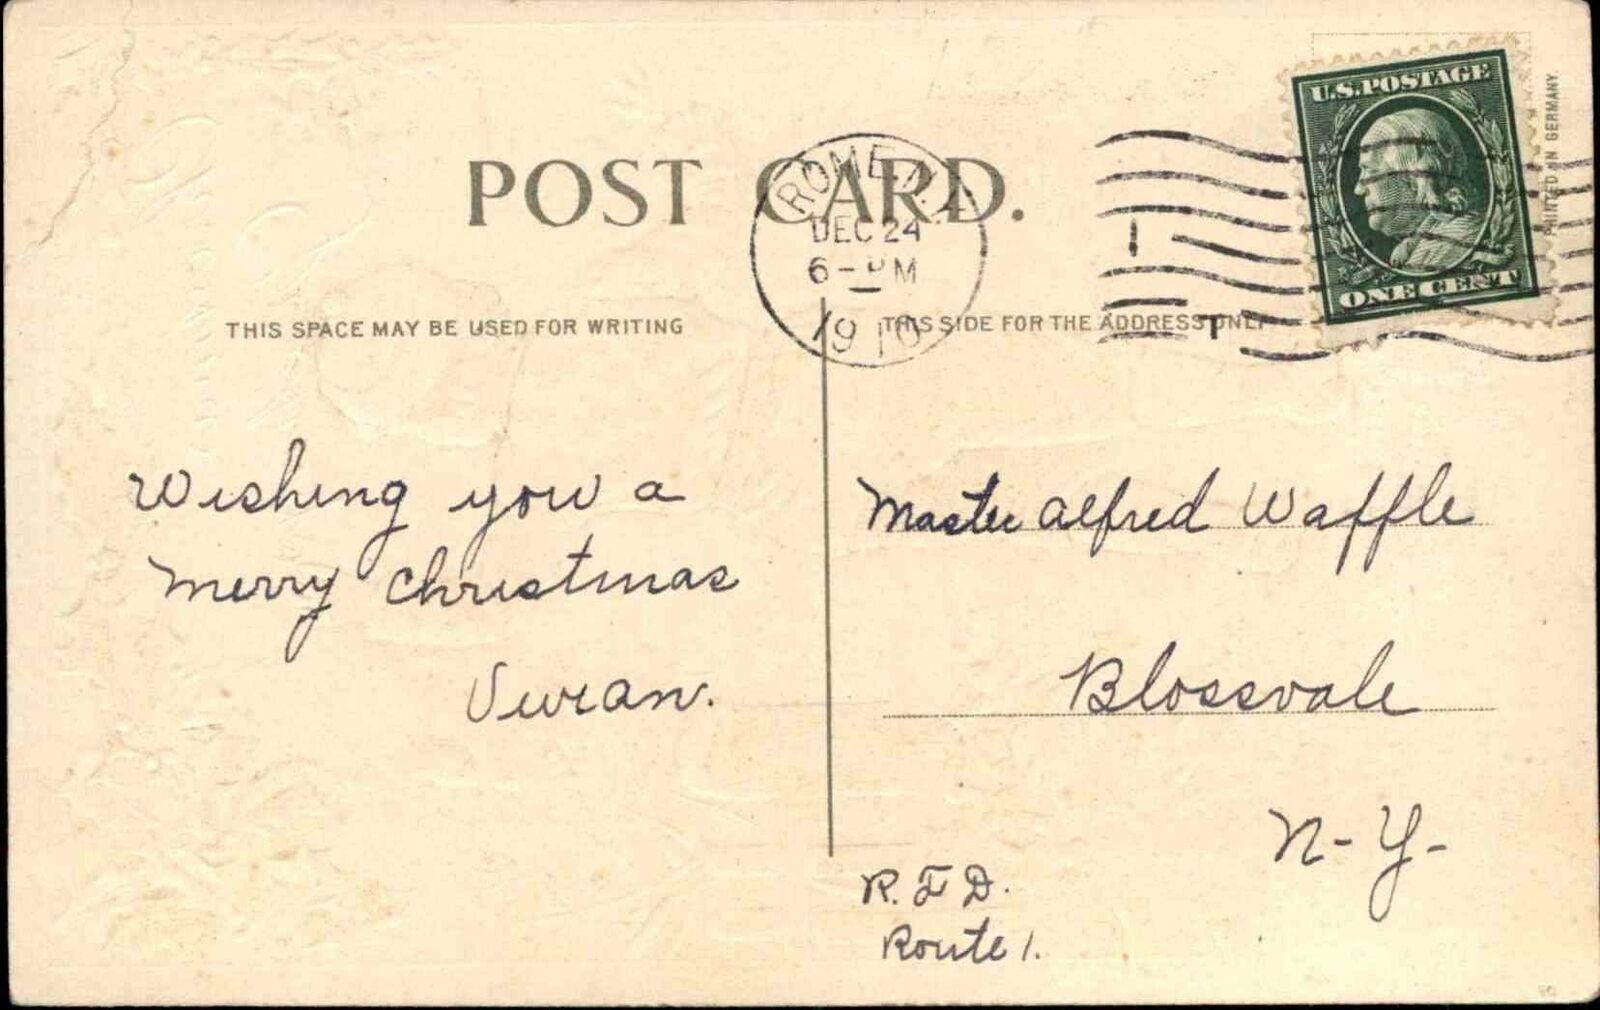 POST CARD.
ROME N.Y.
DEC 24
6-PM
1910
U.S.POSTAGE
ONE CENT
PRINTED IN GERMANY.
THIS SPACE MAY BE USED FOR WRITING
THIS SIDE FOR THE ADDRESS ONLY
Wishing you a
Merry Christmas
Vivian.
Master Alfred Waffle
Blossvale
N-Y-
R.F.D.
Route 1.